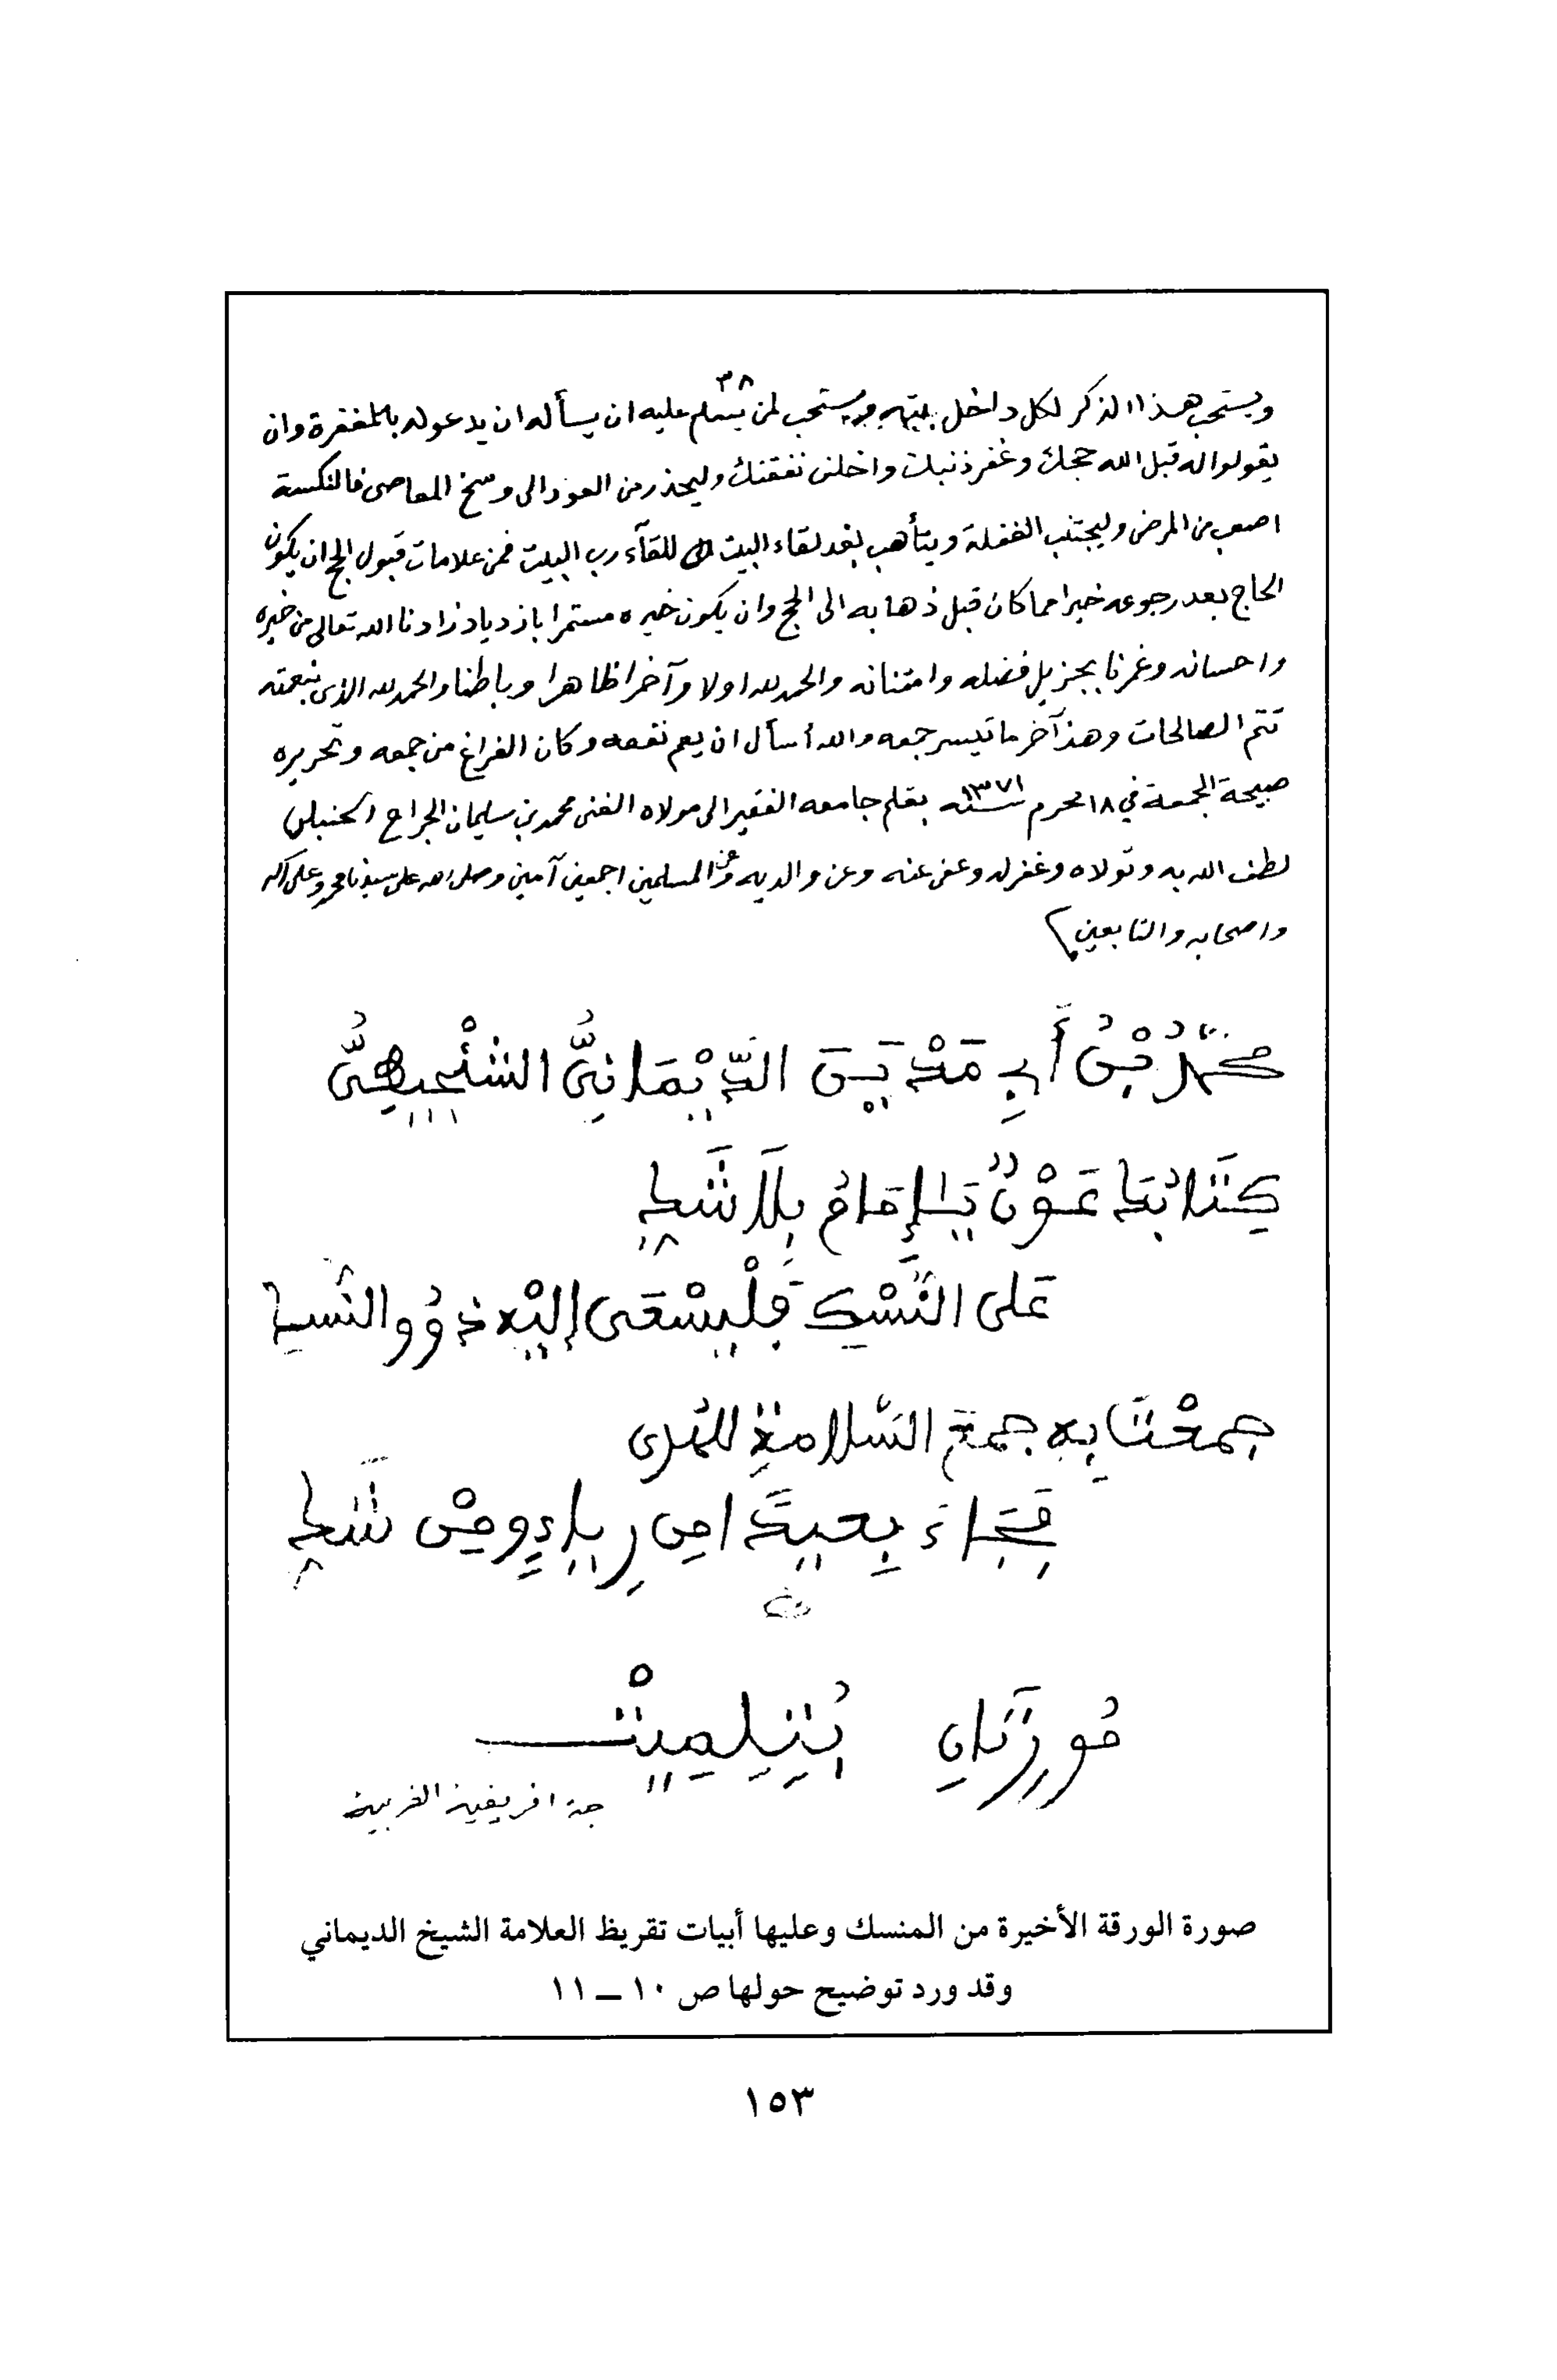 ٣٨
ويستحب هذا الذكر لكل داخل بيته ويستحب لمن يسلم عليه ان يسأله ان يدعو له بالمغفرة وان
يقولوا له قبل الله حجك وغفر ذنبك واخلف نفقتك وليحذر من العود الى وسخ المعاصي فالنكسة
اصعب من المرض وليجتنب الغفلة ويتأهب بعد لقاء البيت للقآء رب البيت فمن علامات قبول الحج ان يكون
الحاج بعد رجوعه خيرا مما كان قبل ذهابه الى الحج وان يكون خيره مستمرا بازدياد زادنا الله تعالى من خيره
واحسانه وغمرنا بجزيل فضله وامتنانه والحمد لله اولا وآخرا ظاهرا وباطنا والحمد لله الذي بنعمته
تتم الصالحات وهذا آخر ما تيسر جمعه والله أسأل ان يعم نفعه وكان الفراغ من جمعه وتحريره
صبيحة الجمعة في ١٨ محرم سنة ١٣٧١ بقلم جامعه الفقير الى مولاه الغني محمد بن سليمان الجراح الحنبلي
لطف الله به وتولاه وغفر له وعفى عنه وعن والديه وعن المسلمين اجمعين آمين وصلى الله على سيدنا محمد وعلى آله
واصحابه والتابعين
مُحمّدُ بْنُ أَبِي مَدْيَنَ الدَّيْمَانِيُّ
كِتَابُكَ عَوْنٌ يَا إِمَامُ بِلَا شَكِّ
عَلَى النُّسْكِ فَلْيَسْعَى إِلَيْهِ ذَوُو النُّسكِ
جمعْتَ بِه جمع السَّلامةِ للهدى
فَجَاءَ بَعِيدًا مِن رِيَاءٍ وَمِنْ شَكِّ
مُورِتَانِ بُتِلِمِيتْ
جهة افريقية الغربية
صورة الورقة الأخيرة من المنسك وعليها أبيات تقريظ العلامة الشيخ الديماني
وقد ورد توضيح حولها ص ١٠ ــ ١١
١٥٣